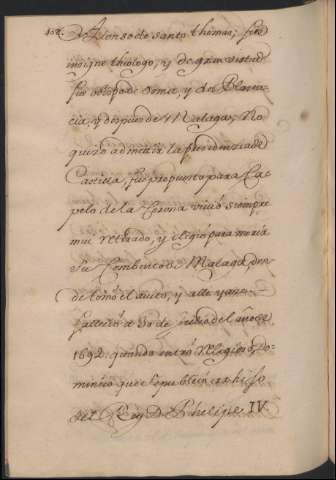 Alonso de santo thomas, fue
insigne theologo, y de gran virtud
fue obispo de Osma, y de Plasen
cia, y despues de Malaga; No
quiso admitir la presidenzia de
Castilla, fue propuesto para Ca
pelo de la Corona vivio siempre
mui retirado, y eligio para morir
su Combento de Malaga, don
de tomo el avito, y alli yaze.
fallecio a 30 de Julio del año de
1692. quando entro religioso, Do
minico que se publico era hijo
del Rey D. Phelipe IV.